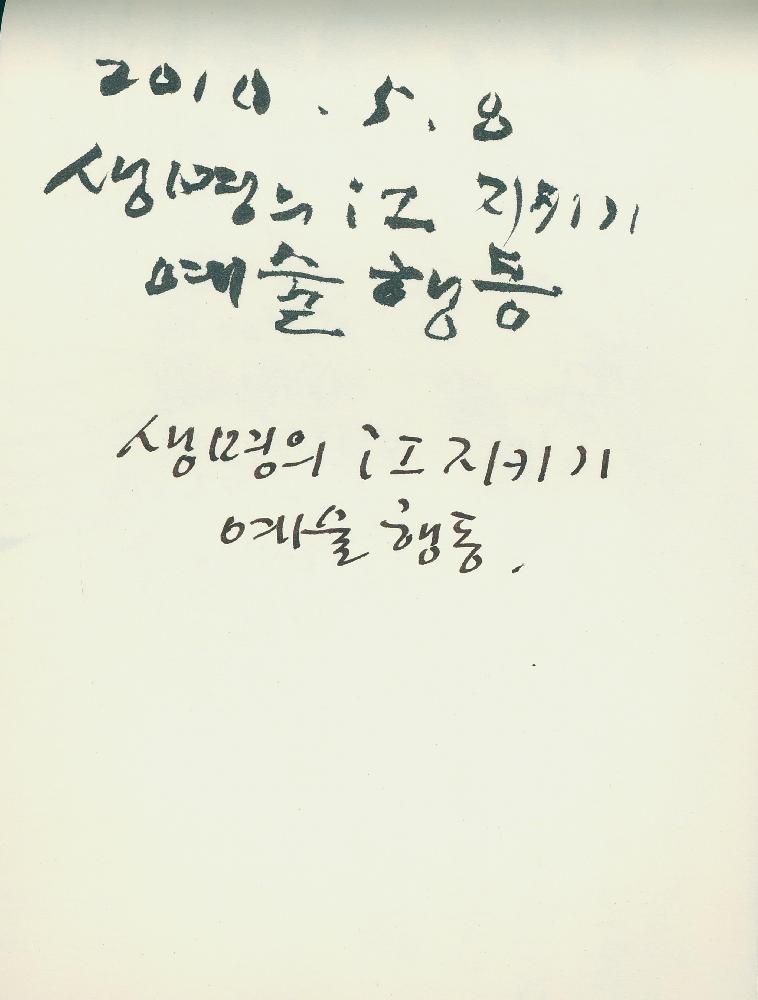 2010.5.8
생명의 江 지키기
예술 행동
생명의 江 지키기
예술 행동.